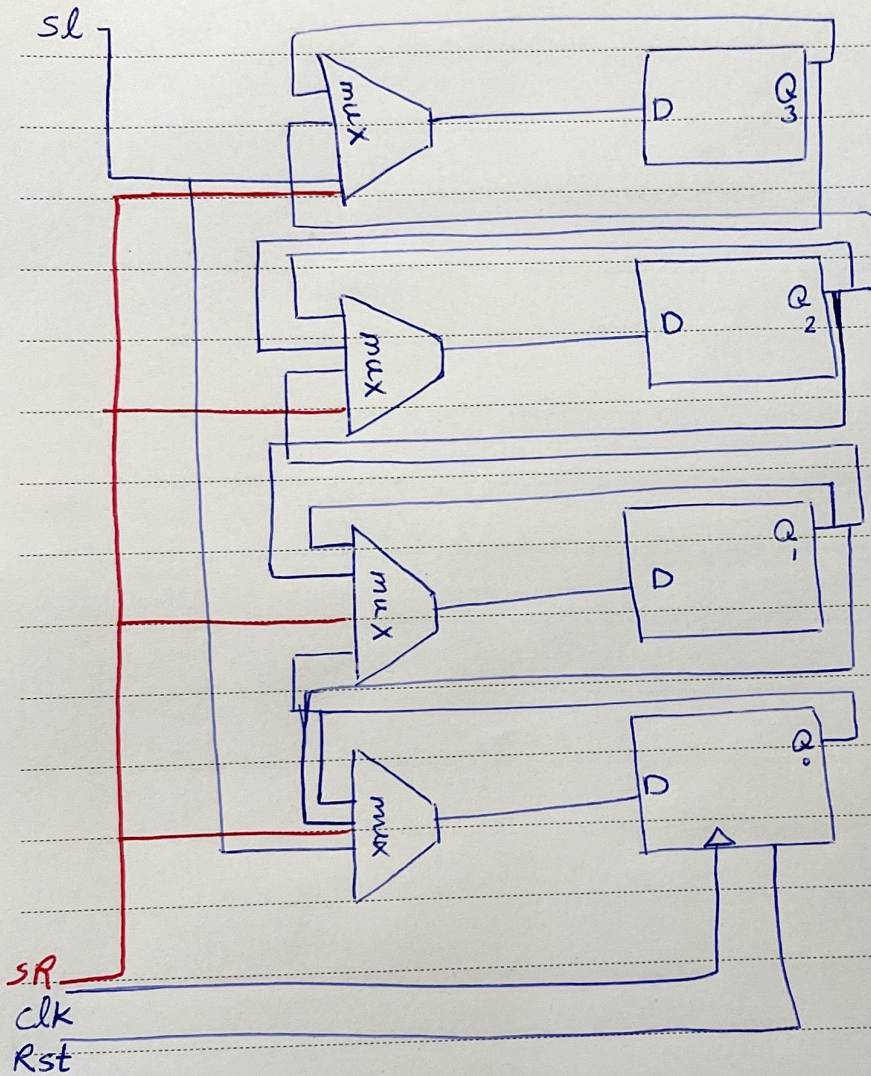 Sl
mux
D
Q
3
mux
D
Q
2
mux
D
Q
1
mux
D
Q
0
SR
Clk
Rst